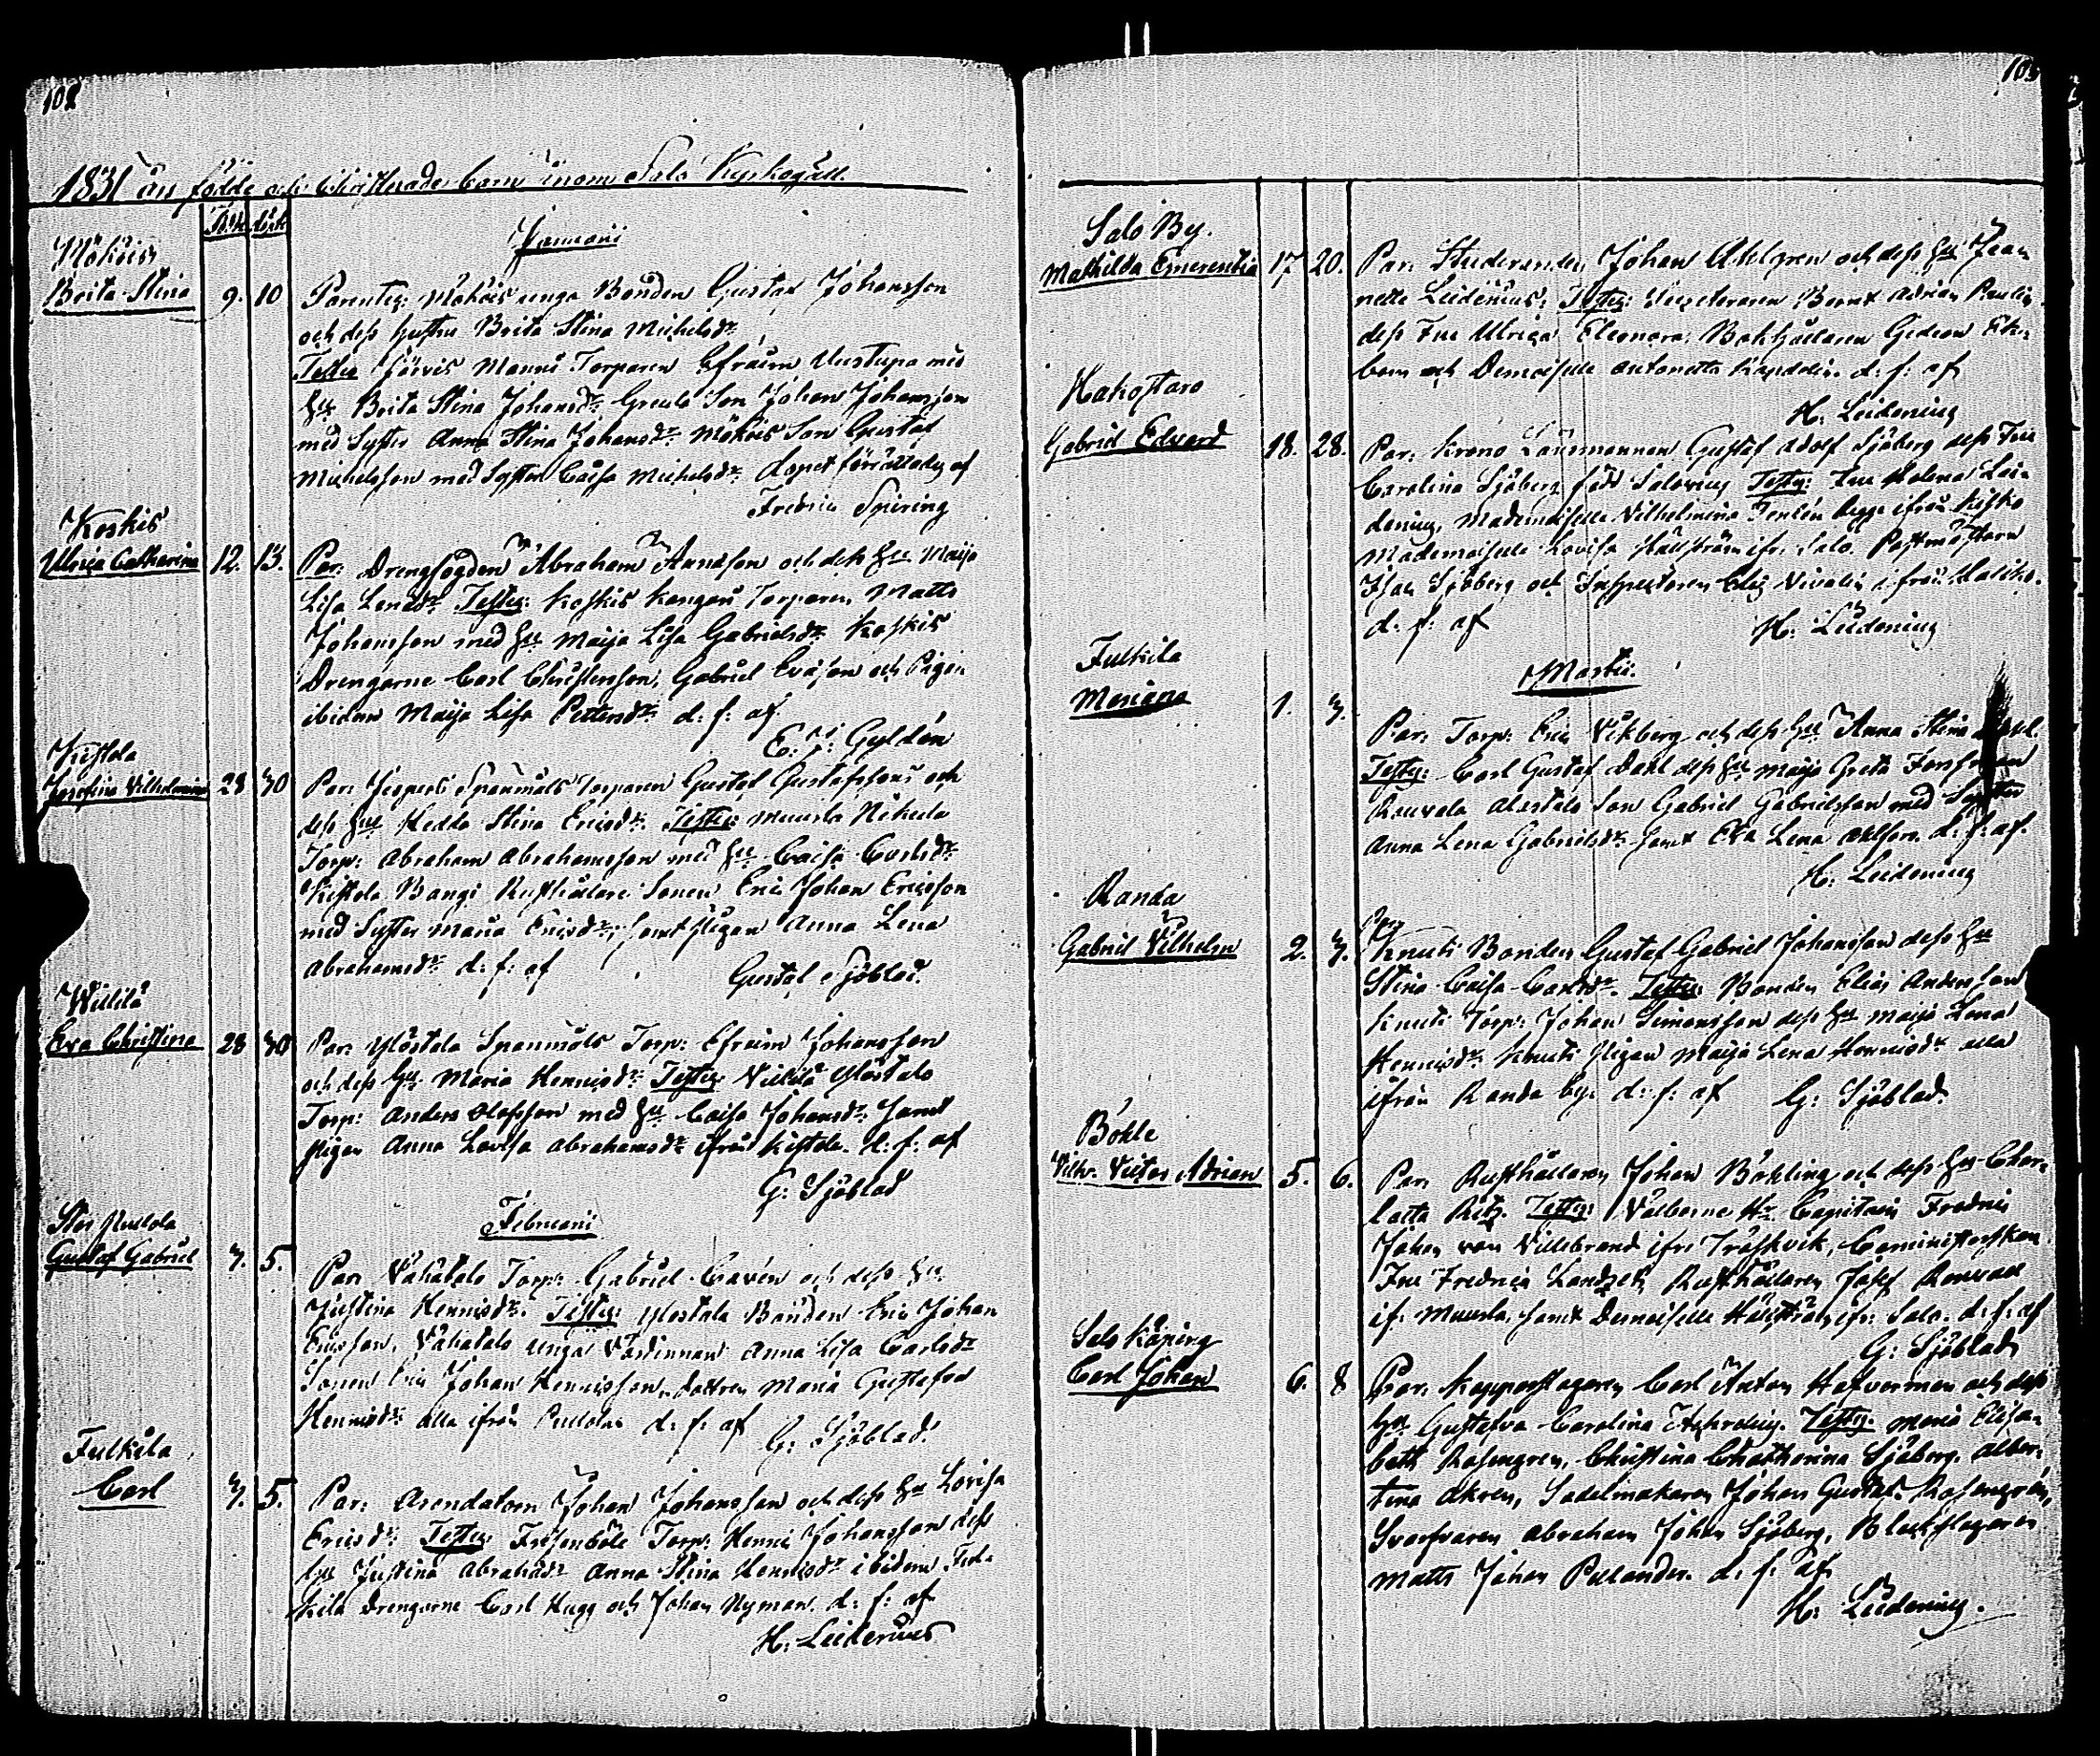 102
1831 års födde och Christnade barn inom Salo Kyrkogäll
födt döpt
Januarii
Mököis
Brita Stina 9. 10
Parentes: Mököis unga Bonden Gustaf Johansson
och dess hustru Brita Stina Michelsdr
Testes Torparen Efraim med
Hu Brita Stina Johansdr Son Johan Johansson
med Syster Anna Stina Johansdr Mököis Son Gustaf
Michelsson med Syster Caisa Michelsdr Dopet förrättades af
Fredric Spiring
Koskis
Ulrica Catharina 12. 13.
Par: Drengfogden Abraham Annasson och dess Hu Maija
Lisa Test: Koskis Torparen Matts
Johansson med Hu Maija Lisa Gabrielsdr Koskis
Drengarne Carl Christersson, Gabriel Evasson och Pigan
ibidem Maija Lisa Pettersdr d: f: af
E: J: Gyldén
Kistola
Josefina Vilhelmina 28 30
Par: Spannmåls Torparen Gustaf Gustafsson och
dess Hu Hedda Stina Ericsdr Testes: Muurla Nikula
Torp: Abraham Abrahamsson med Hu Caisa Carlsdr
Kistola Rusthållare Sonen Eric Johan Ericsson
med Syster Maria Ericsdr, samt Pigan Anna Lena
Abrahamsdr d: f: af Gustaf Sjöblad.
Villilä
Eva Christina 28 30
Par: Ylöstalo Spannmåls Torp: Efraim Johansson
och dess Hu Maria Henricsdr Testes: Villilä Ylöstalo
Torp: Anders Olofsson med Hu Caisa Johansdr samt
Pigan Anna Lovisa Abrahamsdr ifrån Kistola. d. f: af
G: Sjöblad
Februarii
Stor Pullola
Gustaf Gabriel 3. 5.
Par: Vähätalo Torp: Gabriel Cavén och dess Hu
Justina Henricsdr. Testes: Ylöstalo Bonden Eric Johan
Ericsson, Vähätalo unga Värdinnan Anna Lisa Carlsdr
Sonen Eric Johan Henricsson, dottren Maria Gustafva
Henricsdr alla ifrån Pullola d: f: af G: Sjöblad.
Fulkila
Carl 3. 5.
Par: Arendatorn Johan Johansson och dess Hu Lovisa
Ericsdr Testes Torp: Henric Johansson dess
Hu Justina Abrahsdr Anna Stina Henricsdr ibidem Ful-
kila Drengarne Carl Hugg och Johan Nyman. d: f: af
H: Leidenius
103
Salo By.
Mathilda Emerentia 17 20.
Par: Studeranden Johan Ahlgren och dess Hu Jean-
nette Leidenius, Testes: Secreteraren Bernt Adrian Paulin
dess Fru Ulrica Eleonora, Bokhållaren Gedeon Eke-
bom och Demoiselle Antonetta d: f: af
H: Leidenius
Hakostaro
Gabriel Edvard 18. 28.
Par: Krono Länsmannen Gustaf Adolf Sjöberg dess Fru
Carolina Sjöberg född Salovius Testes: Fru Helena Lei-
denius, Mademoiselle Vilhelmina ifrån Kisko
Mademoiselle Lovisa Hällström ifr: Salo. Postmästaren
Isac Sjöberg och Inspectoren Elis Vivalin ifrån Haliko.
d: f: af H: Leidenius
Martii.
Fulkila
Mariana 1. 3.
Par: Torp: Eric Vikberg och dess Hu Anna Stina
Testes: Carl Gustaf Dahl dess Hu Maija Greta Forsman
Rouvala Alastalo Son Gabriel Gabrielsson med Syster
Anna Lena Gabrielsdr samt Eva Lena d: f: af.
H: Leidenius
Randa
Gabriel Vilhelm 2. 3.
Par: Knuti Bonden Gustaf Gabriel Johansson dess Hu
Stina Caisa Carlsdr. Testes: Bonden Elias Andersson
Knuti Torp: Johan Simonsson dess Hu Maija Lena
Henricsdr Knuti Pigan Maija Lena Henricsdr alla
ifrån Randa by. d: f: af G: Sjöblad.
Böhle
Vilh. Victor Adrian 5. 6.
Par: Rusthållaren Johan Böhling och dess Hu Char-
lotta Testes: Välborne Hr Capitain Fredric
Johan von Villebrand ifr: Träskvik, Comministerskan
Fru Fredrica Rusthållaren Josef Rouvall
if: Muurla, samt Demoiselle Hällström ifr: Salo. d: f: af
G: Sjöblad
Salo Köping
Carl Johan 6. 8
Par: Kopparslagaren Carl Anton Hafverman och dess
Hu Gustafva Carolina Testes: Maria Elisa-
beth Rosengren, Christina Chatharina Sjöberg, Alber-
tina Åkren, Sadelmakaren Johan Gustaf Rosengrén,
Svarfvaren Abraham Johan Sjöberg, Bleckslagaren
Matts Johan Pulander. d. f: af
H: Leidenius.